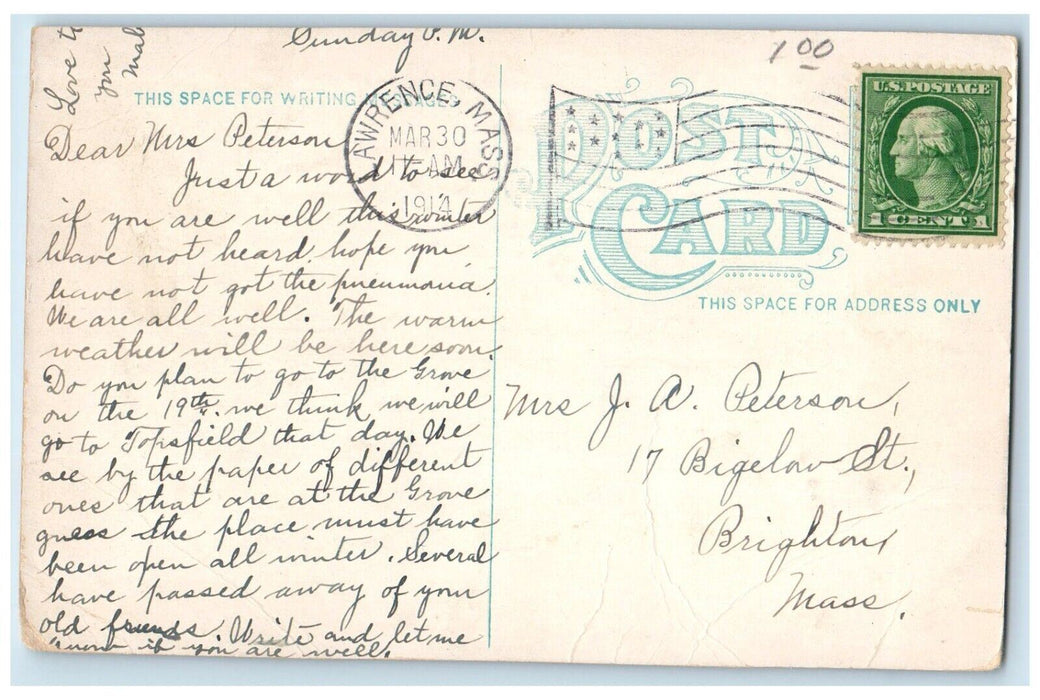 Sunday P.M.
1 00
THIS SPACE FOR WRITING MESSAGES
Love to
you
Mab
LAWRENCE, MASS.
MAR 30
AM
1914
U.S. POSTAGE
1 CENT 1
POST CARD
THIS SPACE FOR ADDRESS ONLY
Dear Mrs Peterson
Just a word to see
if you are well this winter
have not heard. hope you
have not got the pneumonia.
We are all well. The warm
weather will be here soon.
Do you plan to go to the Grove
on the 19th. we think we will
go to Topsfield that day. We
see by the paper of different
ones that are at the Grove
guess the place must have
been open all winter. Several
have passed away of your
old friends. Write and let me
know if you are well.
Mrs J. A. Peterson,
17 Bigelow St.,
Brighton,
Mass.